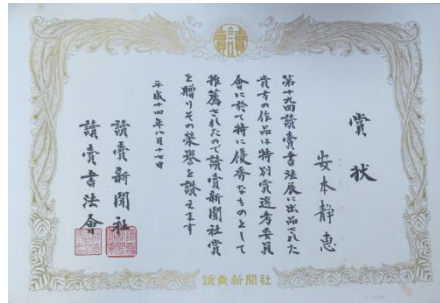 賞状
安本静恵
第十九回讀賣書法展に出品された
貴方の作品は特別賞選考委員
会に於て特に優秀なものとして
推薦されたので讀賣新聞社賞
を贈りその栄誉を讃えます
平成十四年八月十七日
讀賣新聞社
讀賣書法會
讀賣新聞社